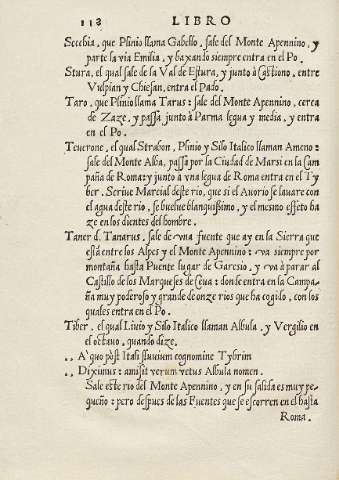 118 LIBRO
Secchia, que Plinio llama Gabello, sale del Monte Apennino, y
parte la via Emilia, y baxando siempre entra en el Po.
Stura, el qual sale de la Val de Estura, y junto à Castiono, entre
Vulpian y Chiesan, entra el Pado.
Taro, que Plinio llama Tarus: sale del Monte Apennino, cerca
de Zaze, y passa junto à Parma legua y media, y entra
en el Po.
Teuerone, el qual Strabon, Plinio y Silo Italico llaman Ameno:
sale del Monte Alba, passa por la Ciudad de Marsi en la Cam
paña de Roma: y junto à vna legua de Roma entra en el Ty
ber. Seriue Marcial deste rio, que si el Auorio se lauare con
el agua deste rio, se buelue blanquissimo, y el mesmo effeto ha
ze en los dientes del hombre.
Taner ò, Tanarus, sale de vna fuente que ay en la Sierra que
està entre los Alpes y el Monte Apennino: va siempre por
montaña hasta Puente lugar de Garesio, y va à parar al
Castillo de los Marqueses de Ceua: donde entra en la Campa-
ña muy poderoso y grande de onze rios que ha cogido, con los
quales entra en el Po.
Tiber, el qual Liuio y Silo Italico llaman Albula, y Vergilio en
el octauo, quando dize.
,, A' quo pòst Itali fluuium cognomine Tybrim
,, Diximus: amisit verum vetus Albula nomen.
Sale este rio del Monte Apennino, y en su salida es muy pe-
queño: pero despues de las Fuentes que se escorren en el hasta
Roma.